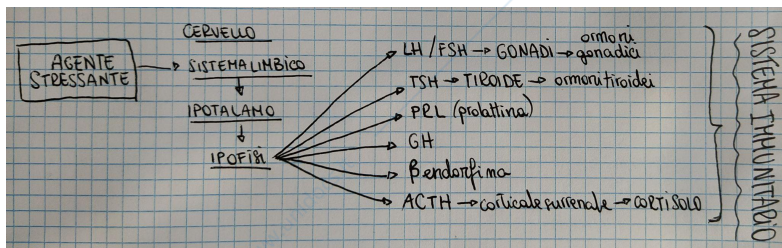 CERVELLO
AGENTE STRESSANTE → SISTEMA LIMBICO
↓
IPOTALAMO
↓
IPOFISI
LH / FSH → GONADI → ormoni gonadici
TSH → TIROIDE → ormoni tiroidei
PRL (prolattina)
GH
β endorfina
ACTH → corticale surrenale → CORTISOLO
SISTEMA IMMUNITARIO